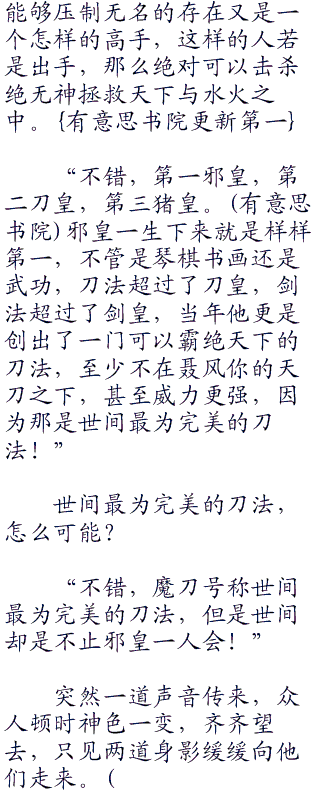 能够压制无名的存在又是一
个怎样的高手，这样的人若
是出手，那么绝对可以击杀
绝无神拯救天下与水火之
中。{有意思书院更新第一}
“不错，第一邪皇，第
二刀皇，第三猪皇。(有意思
书院)邪皇一生下来就是样样
第一，不管是琴棋书画还是
武功，刀法超过了刀皇，剑
法超过了剑皇，当年他更是
创出了一门可以霸绝天下的
刀法，至少不在聂风你的天
刀之下，甚至威力更强，因
为那是世间最为完美的刀
法！”
世间最为完美的刀法，
怎么可能？
“不错，魔刀号称世间
最为完美的刀法，但是世间
却是不止邪皇一人会！”
突然一道声音传来，众
人顿时神色一变，齐齐望
去，只见两道身影缓缓向他
们走来。(